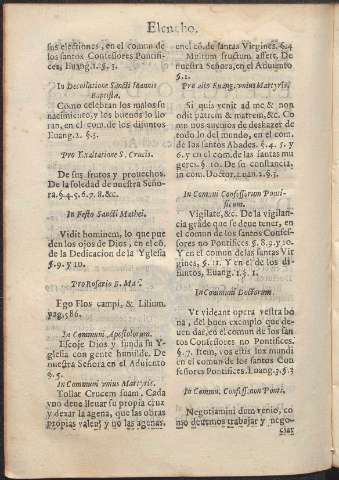 Elencho.
sus elecciones, en el comun de
los santos Confessores Pontifi-
ces, Euang. 1. §. 3.
In Decollatione Sancti Ioannis
Baptistæ.
Como celebran los malos su
nacimiento, y los buenos lo llo
ran, en el com. de los difuntos
Euang. 2. §. 5.
Pro Exaltatione S. Crucis.
De sus frutos y prouechos.
De la soledad de nuestra Seño-
ra. §. 4. 5. 6. 7. 8. &c.
In Festo Sancti Mathei.
Vidit hominem, lo que pue
den los ojos de Dios, en el cõ.
de la Dedicacion de la Yglesia
§. 9. y 10.
Pro Rosario B. Ma.
Ego Flos campi, & Lilium.
pag. 586.
In Communi Apostolorum.
Escoje Dios y funda su Y-
glesia con gente humilde. De
nuestra Señora en el Aduiento
§. 5.
In Communi vnius Martyris.
Tollat Crucem suam. Cada
vno deue lleuar su propia cruz
y dexar la agena, que las obras
propias valen y no las agenas,
en el cõ. de santas Virgines. §. 4
Multum fructum affert. De
nuestra Señora, en el Aduiento
§. 1.
Pro alio Euang. vnius Martyris.
Si quis venit ad me & non
odit patrem & matrem, &c. Co
mo nos auemos de deshazer de
todo lo del mundo, en el com.
de los santos Abades. §. 4. 5. y
6. y en el com. de las santas mu
geres. §. 10. De su constancia,
in com. Doctor. Euan. 2. §. 3.
In Comuni Confessorum Ponti-
ficum.
Vigilate, &c. De la vigilan
cia grãde que se deue tener, en
el comun de los santos Confes-
sores no Pontifices §. 8. 9. y 10.
Y en el comun de las santas Vir
gines, §. 11. Y en el de los di-
funtos, Euang. 1. §. 1.
In Communi Doctorum.
Vt videant opera vestra bo
na, del buen exemplo que de-
uen dar, en el comun de los san
tos Confessores no Pontifices.
§. 7. Item, vos estis lux mundi
en el comun de los santos Con
fessores Pontifices. Euang. 3. §. 3
In Commu. Confess. non Ponti.
Negotiamini dum venio, co
mo deuemos trabajar y nego-
ciar